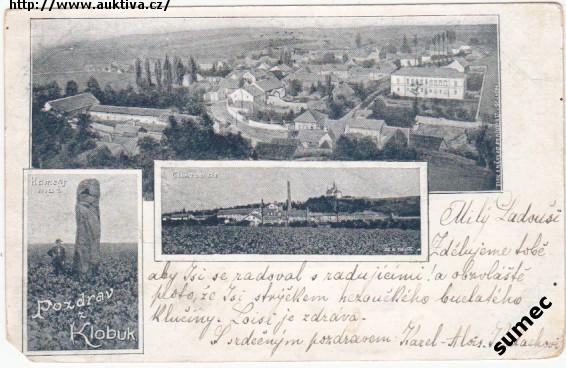 http://www.auktiva.cz/
Kamenný
muž
Cukrovar
Pozdrav
z
Klobuk
Milý Ladouši
Zdělujeme tobě
aby Jsi se radoval s radujícími! a obzvláště
proto, že Jsi strýčkem hezoučkého buclatého
klučiny. Loisi je zdráva.
S srdečným pozdravem Karel-Alois.
sumec